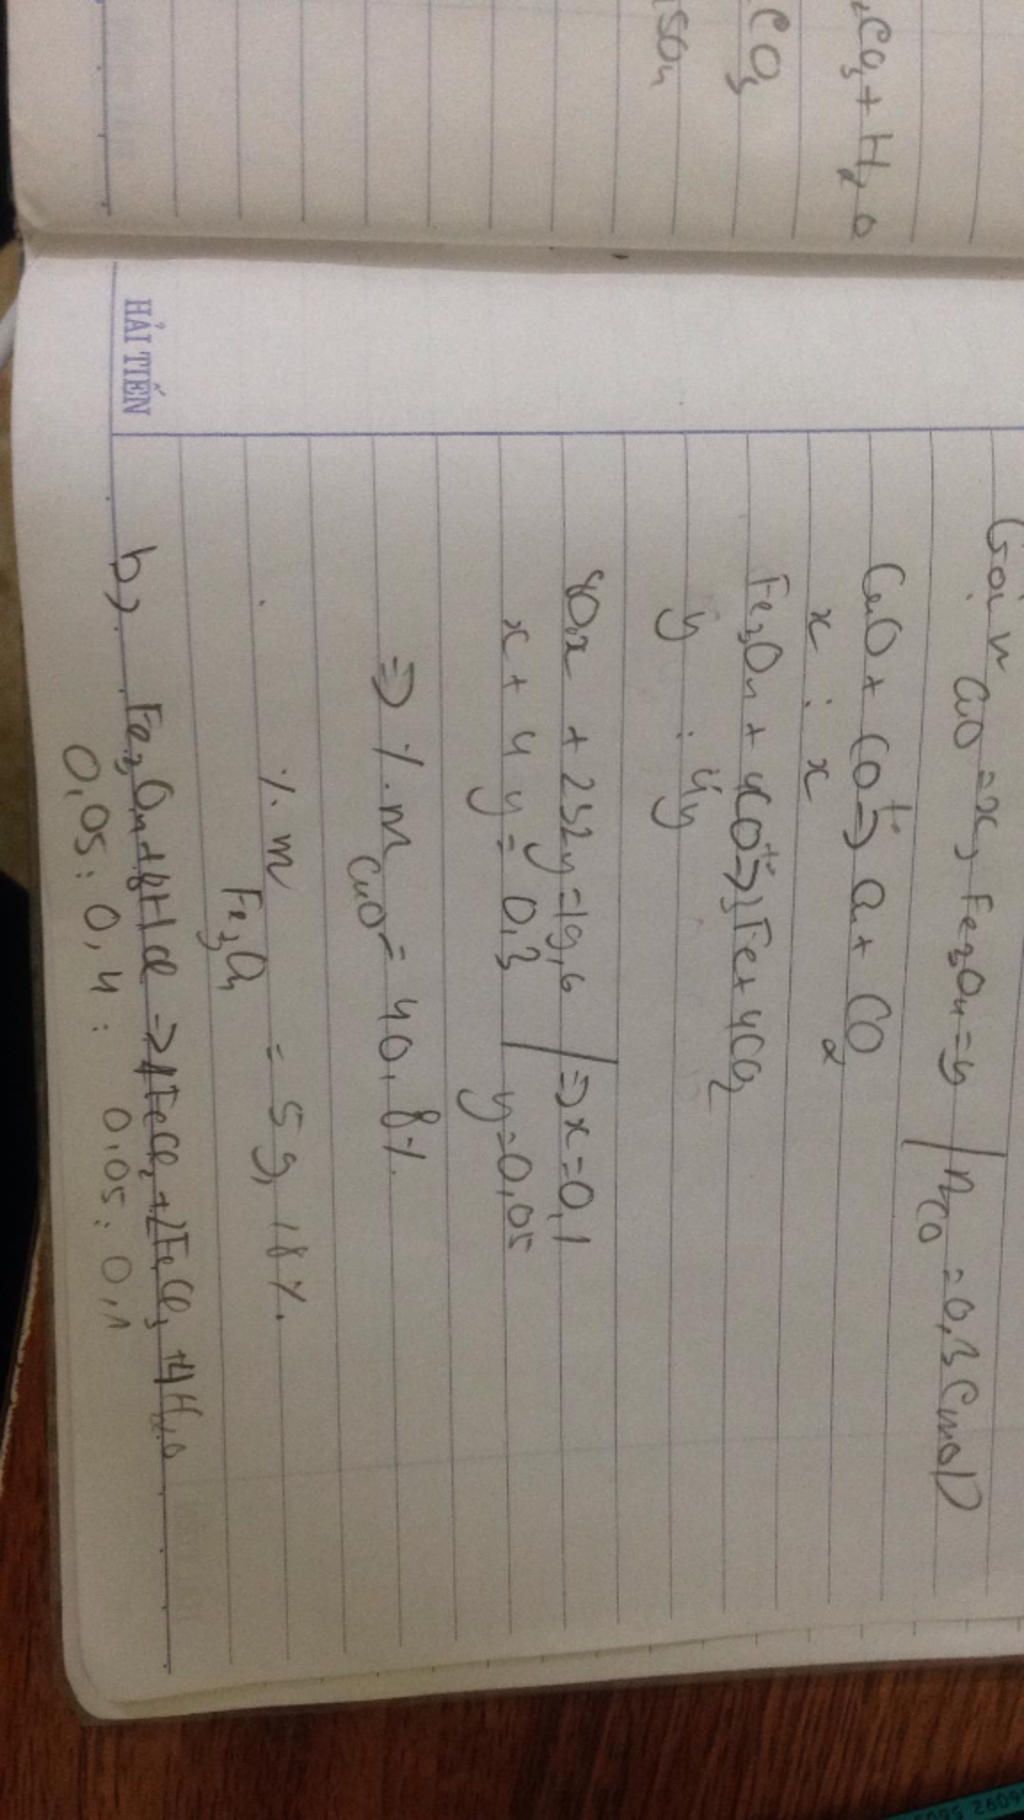 2CO3 + H2O
CO3
SO4
HẢI TIẾN
Gọi n CuO = x, Fe3O4 = y | nCO = 0,3 (mol)
CuO + CO t° → Cu + CO2
x : x
Fe3O4 + 4CO t° → 3Fe + 4CO2
y : 4y
80x + 232y = 19,6 | => x = 0,1
x + 4y = 0,3 | y = 0,05
=> %mCuO = 40,8%
%mFe3O4 = 59,18%
b) Fe3O4 + 8HCl → 1FeCl2 + 2FeCl3 + 4H2O
0,05 : 0,4 : 0,05 : 0,1
2609